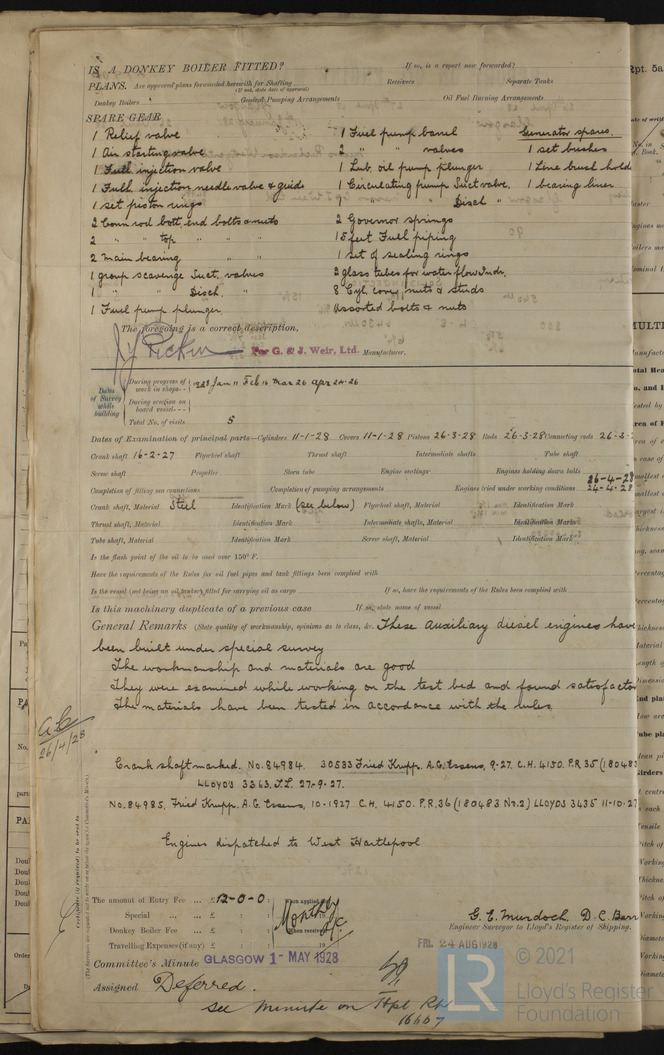 IS A DONKEY BOILER FITTED? If so, is a report now forwarded?
PLANS. Are approved plans forwarded herewith for Shafting Receivers Separate Tanks
(If not, state date of approval)
Donkey Boilers General Pumping Arrangements Oil Fuel Burning Arrangements
SPARE GEAR
1 Relief valve 1 Fuel pump barrel Generator spares.
1 Air starting valve 2 " " valves 1 set brushes
1 Fuel injection valve 1 Lub. oil pump plunger 1 Line brush hold
1 Fuel injection needle valve & guide 1 Circulating pump Suct valve. 1 bearing liner
1 set piston rings 1 " " Disch "
2 Conn rod bott. end bolts & nuts 2 Governor springs
2 " " top " " " 15 feet Fuel piping
2 main bearing " " 1 set of sealing rings
1 group scavenge Suct. valves 2 glass tubes for water flow Indr.
1 " " Disch. " 8 Cyl. cover nuts & studs
1 Fuel pump plunger Assorted bolts & nuts
The foregoing is a correct description,
For G. & J. Weir, Ltd. Manufacturer.
Dates of Survey while building
During progress of work in shops - - Jan 11 Feb 16 Mar 26 Apr 24. 26
During erection on board vessel - - -
Total No. of visits 5
Dates of Examination of principal parts—Cylinders 11-1-28 Covers 11-1-28 Pistons 26-3-28 Rods 26-3-28 Connecting rods 26-3-
Crank shaft 16-2-27 Flywheel shaft Thrust shaft Intermediate shafts Tube shaft
Screw shaft Propeller Stern tube Engine seatings Engines holding down bolts
26-4-28
Completion of fitting sea connections Completion of pumping arrangements Engines tried under working conditions 24-4-28
Crank shaft, Material Steel Identification Mark (see below) Flywheel shaft, Material Identification Mark
Thrust shaft, Material Identification Mark Intermediate shafts, Material Identification Marks
Tube shaft, Material Identification Mark Screw shaft, Material Identification Mark
Is the flash point of the oil to be used over 150° F.
Have the requirements of the Rules for oil fuel pipes and tank fittings been complied with
Is the vessel (not being an oil tanker) fitted for carrying oil as cargo If so, have the requirements of the Rules been complied with
Is this machinery duplicate of a previous case If so, state name of vessel
General Remarks (State quality of workmanship, opinions as to class, &c. These Auxiliary diesel engines have
been built under special survey
The workmanship and materials are good
They were examined while working on the test bed and found satisfactor
The materials have been tested in accordance with the rules
26/4/28
Crank shaft marked. No. 84984. 30533 Fried Krupp. A.G. Essens, 9-27. C.H. 4150. P.R. 35 (18048
LLOYDS 3363. J.L. 27-9-27.
No. 84985, Fried Krupp. A.G. Essens, 10-1927 C.H. 4150. P.R. 36 (180483 No. 2) LLOYDS 3435 11-10-27
Engines dispatched to West Hartlepool
The amount of Entry Fee ... £ 12-0-0 :
Special ... ... £ : :
Donkey Boiler Fee ... £ : :
Travelling Expenses (if any) £ : :
Monthly A/c
G. C. Murdoch, D. C. Barr
Engineer Surveyor to Lloyd's Register of Shipping.
FRI. 24 AUG 1928
Committee's Minute GLASGOW 1- MAY 1928
Assigned Deferred.
See minute on Hpl Rpt
16667
© 2021
Lloyd's Register
Foundation
LR